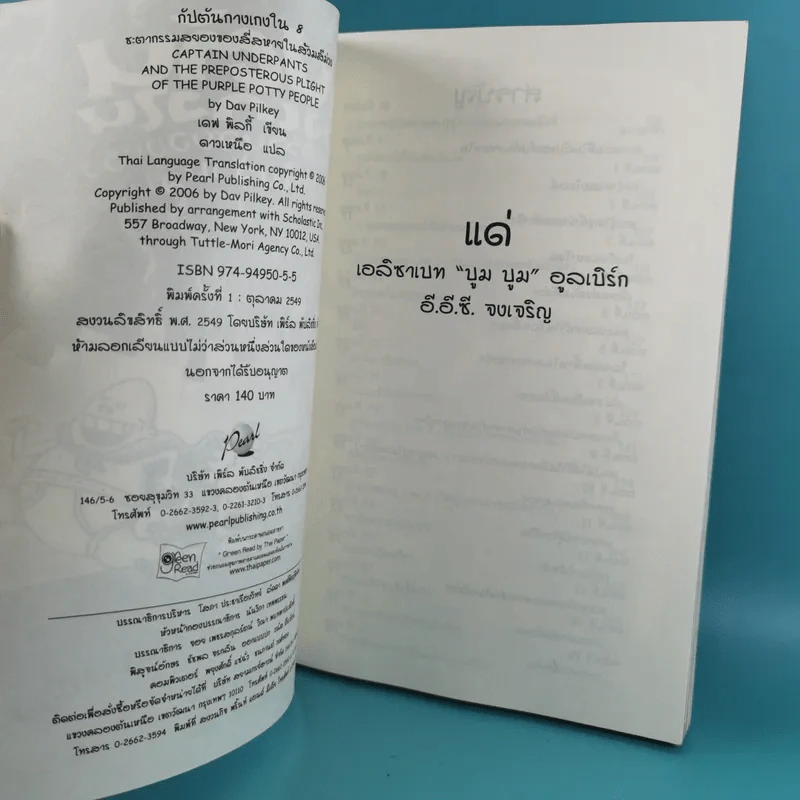 กัปตันกางเกงใน 8
ชะตากรรมสยองของสี่สหายในส้วมสีม่วง
CAPTAIN UNDERPANTS
AND THE PREPOSTEROUS PLIGHT
OF THE PURPLE POTTY PEOPLE
by Dav Pilkey
เดฟ พิลกี้ เขียน
ดาวเหนือ แปล
Thai Language Translation copyright © 2006
by Pearl Publishing Co., Ltd.
Copyright © 2006 by Dav Pilkey. All rights reserve
Published by arrangement with Scholastic Inc,
557 Broadway, New York, NY 10012, USA
through Tuttle-Mori Agency Co., Ltd.
ISBN 974-94950-5-5
พิมพ์ครั้งที่ 1 : ตุลาคม 2549
สงวนลิขสิทธิ์ พ.ศ. 2549 โดยบริษัท เพิร์ล พับลิชชิ่ง
ห้ามลอกเลียนแบบไม่ว่าส่วนหนึ่งส่วนใดของหนังสือ
นอกจากได้รับอนุญาต
ราคา 140 บาท
Pearl
บริษัท เพิร์ล พับลิชชิ่ง จำกัด
146/5-6 ซอยสุขุมวิท 33 แขวงคลองตันเหนือ เขตวัฒนา
โทรศัพท์ 0-2662-3592-3, 0-2261-3210-3 โทรสาร
www.pearlpublishing.co.th
Green Read
" Green Read by Thai Paper "
www.thaipaper.com
บรรณาธิการบริหาร
หัวหน้ากองบรรณาธิการ
บรรณาธิการ
พิสูจน์อักษร
คอมพิวเตอร์
ติดต่อเพื่อสั่งซื้อหรือจัดจำหน่ายได้ที่ บริษัท
แขวงคลองตันเหนือ เขตวัฒนา กรุงเทพฯ 10110 โทรศัพท์
โทรสาร 0-2662-3594 พิมพ์ที่
แด่
เอลิซาเบท “บูม บูม” อูลเบิร์ก
อี.อี.ซี. จงเจริญ